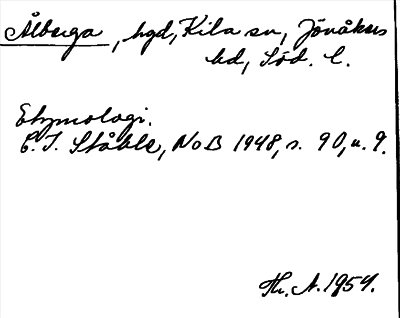 Ålberga, hgd, Kila sn, Jönåkers
hd, Söd. l.
Etymologi.
C. I. Ståhle, NoB 1948, s. 90, n. 9.
Th. A. 1954.